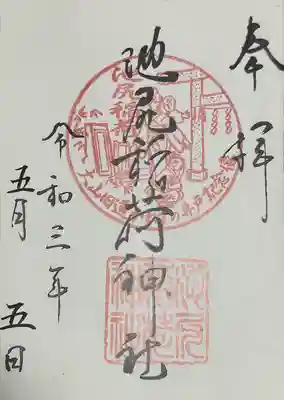 奉拝
池尻稲荷神社
令和三年
五月 五日